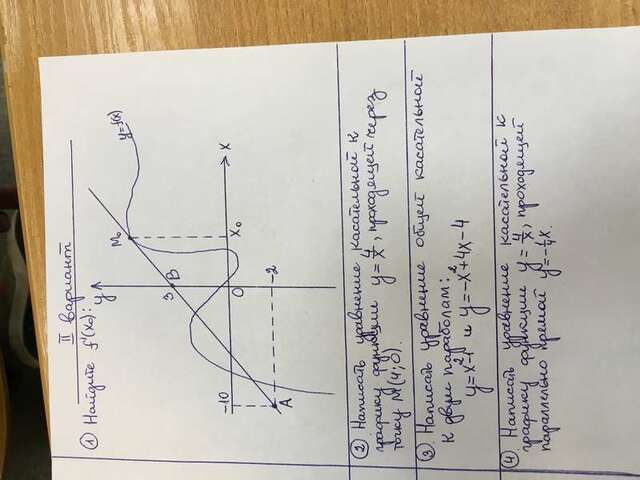 II вариант
① Найдите f'(x₀):
y
M₀
y=f(x)
3
B
0
x₀
x
-10
-2
A
② Написать уравнение касательной к
графику функции y=4/x, проходящей через
точку M(4;0).
③ Написать уравнение общей касательной
к двум параболам:
y=x²-1 и y=-x²+4x-4
④ Написать уравнение касательной к
графику функции y=4/x, проходящей
параллельно прямой y=-1/4x.